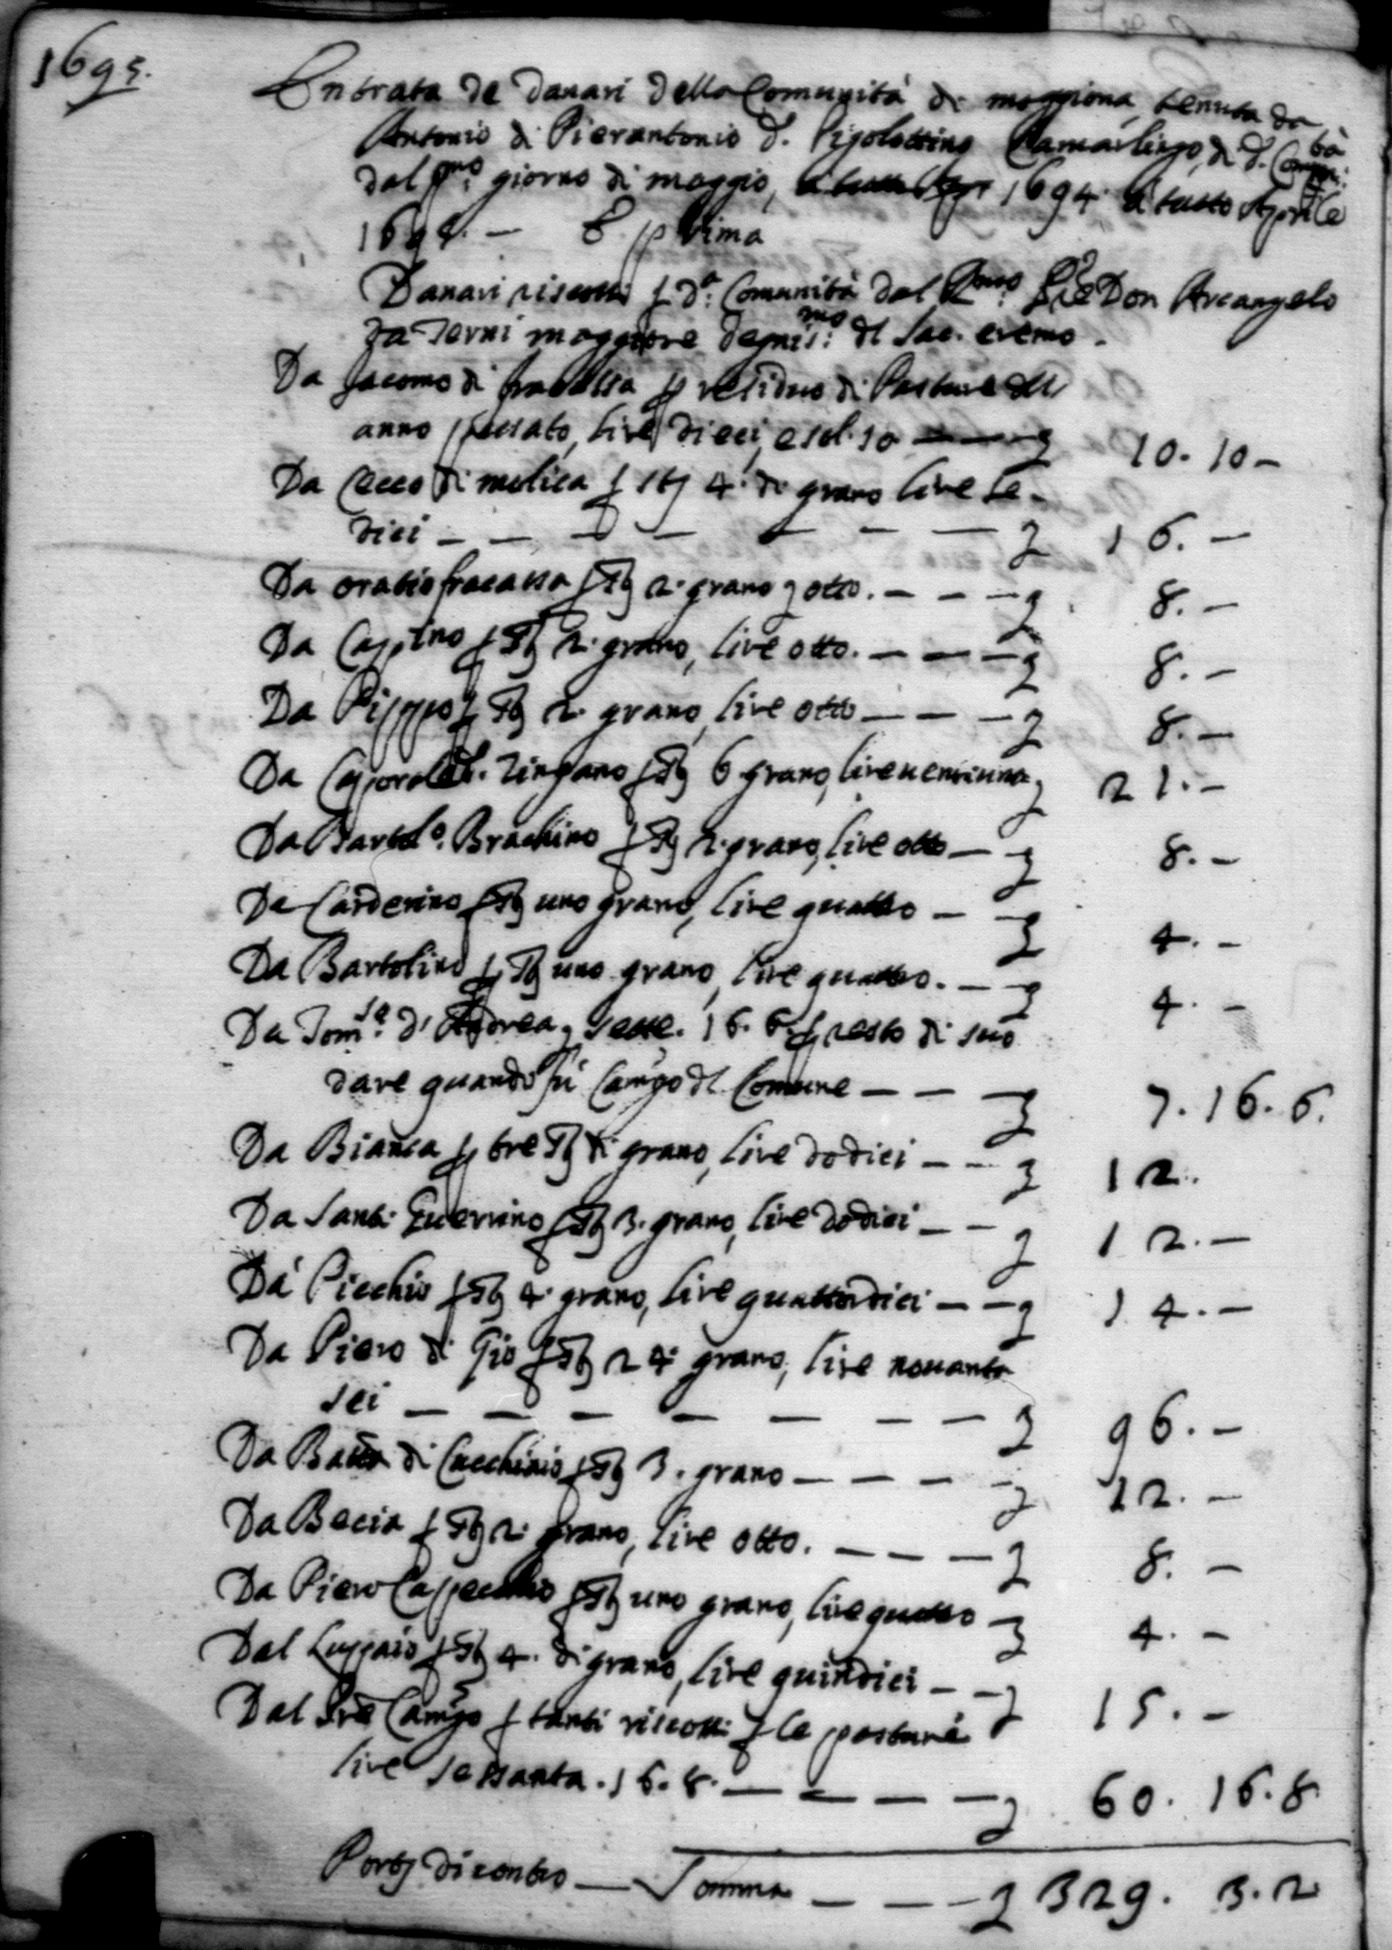 1695.
Entrata de Danari della Comunità di moggiona, tenuta da
Antonio di Pierantonio d. Pigolottino Camarlingo, di d. Comtà
dal pmo. giorno di maggio, 1694. a tutto Aprile
169 — E prima
Danari riscotti p da: Comunità dal Rmo. Pre Don Arcangelo
da Terni maggiore degniss:mo dl Sac. eremo.
Da Jacomo di fracassa p residuo di Pasture dll
anno passato, lire dieci, e sol. 10 — — 10. 10 —
Da Cecco di melica p st 4. di grano lire se-
dici — — — — — — 16. —
Da oratio fracassa p st 2. grano otto. — — — 8. —
Da Cappino p st 2. grano, lire otto. — — — 8. —
Da Pippo p st 2. grano, lire otto — — — 8. —
Da Caporal Zingano p st 6 grano, lire uentiuna 21. —
Da Bartolo. Brachino p st 2. grano, lire otto — 8. —
Da Carderino p st uno grano, lire quattro — — 4. —
Da Bartolino p st uno grano, lire quattro. — — 4. —
Da Tomso. d' Andrea, sette. 16. 6. p resto di suo
dare quando fù Campo dl Comune — — — 7. 16. 6.
Da Bianca p tre st di grano, lire dodici — — 12.
Da Santi Guerrino p st 3. grano, lire dodici — — 12. —
Da Picchio p st 4. grano, lire quattordici — — 14. —
Da Piero di Gio p st 24. grano, lire nouanta
sei — — — — — — — 96. —
Da Batta di Cecchinio p st 3. grano — — — — 12. —
Da Becia p st 2. grano, lire otto. — — — — 8. —
Da Piero Cappecchio p st uno grano, lire quattro — 4. —
Dal Luppaio p st 4. di grano, lire quindici — — 15. —
Dal Pre Campo p tanti riscotti p le pasture
lire sessanta. 16. 8. — — — — 60. 16. 8
Porto di contro — Somma — — — 329. 3. 2